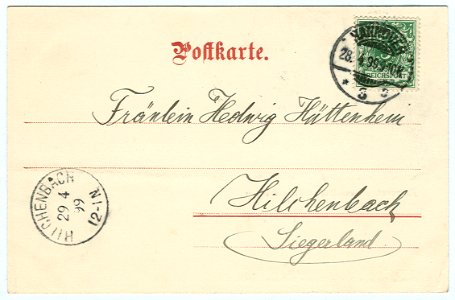 Postkarte.
HANNOVER
REICHSPOST
3 3
Fräulein Hedwig Hüttenhein
HILCHENBACH
29 4 99
12-1 N
Hilchenbach
Siegerland.